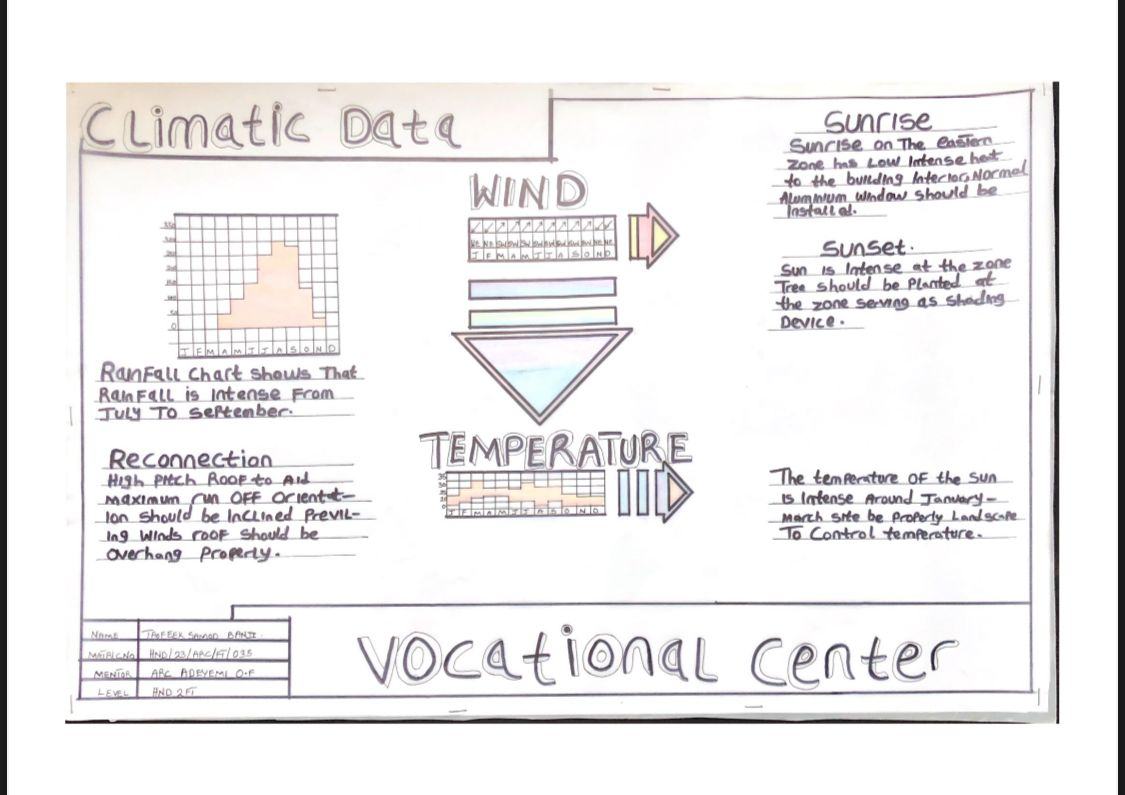 Climatic Data
350
300
250
200
150
100
50
0
J F M A M J J A S O N D
Rainfall Chart Shows That
Rainfall is Intense From
July To September.
Reconnection
High Pitch Roof to Aid
maximum run off Orientat-
ion should be Inclined Previl-
ing Winds roof should be
Overhang Property.
WIND
NE NE SW SW SW SW SW SW SW SW NE NE
J F M A M J J A S O N D
TEMPERATURE
J F M A M J J A S O N D
Sunrise
Sunrise on The Eastern
Zone has Low Intense heat
to the building Interior, Normal
Aluminium window should be
Installed.
Sunset.
Sun is Intense at the zone
Tree should be Planted at
the zone serving as shading
Device.
The temperature of the Sun
is Intense Around January-
march site be Property Landscape
To Control temperature.
NAME TAOFEEK SAMOD BANJI.
MATRIC No HND/23/ARC/FT/035
MENTOR ARC ADEYEMI O.F
LEVEL HND 2FT
Vocational Center